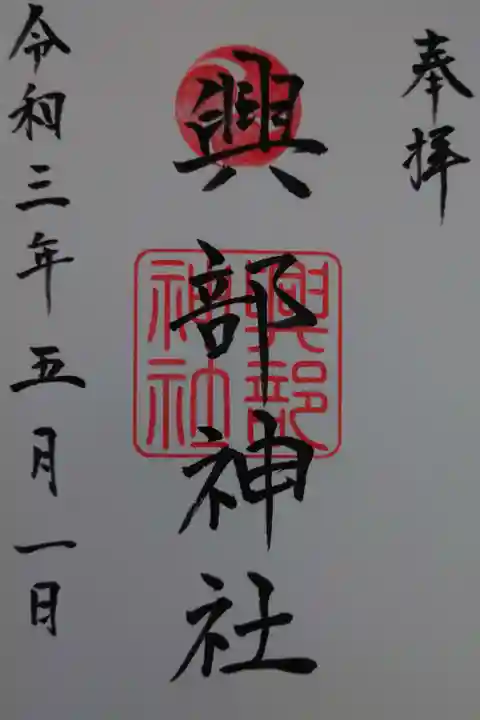 奉拝
興部神社
興部神社
令和三年五月一日